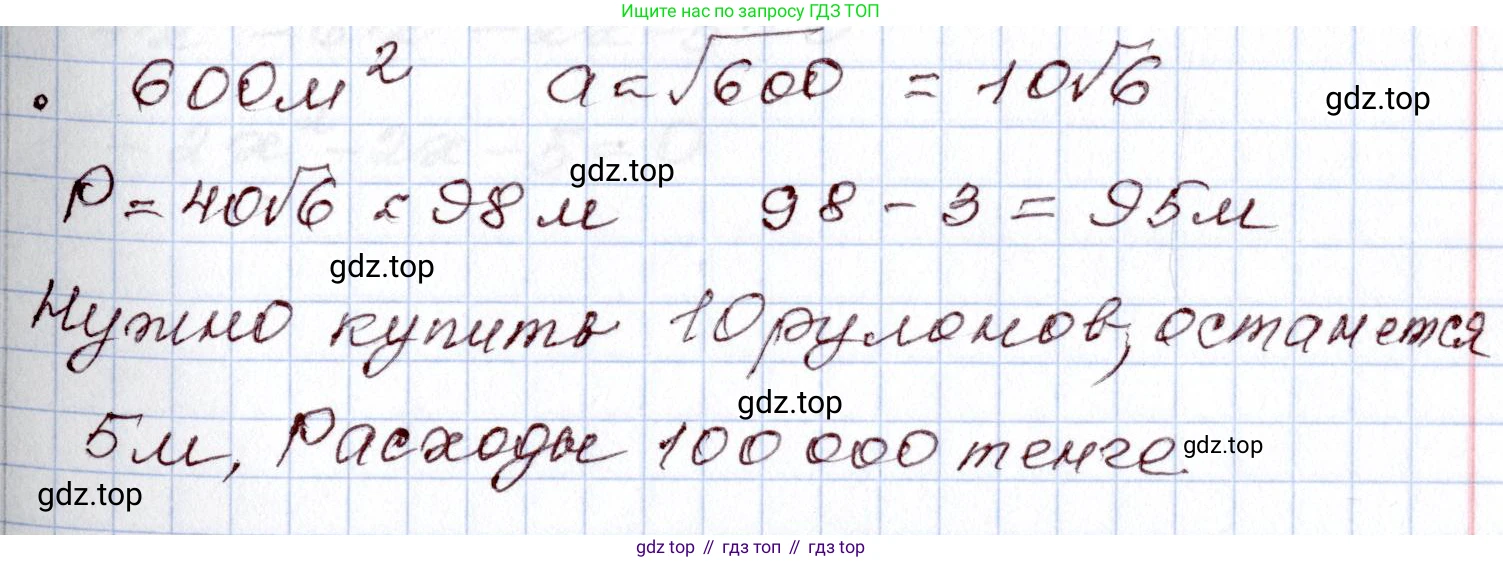 Ищите нас по запросу ГДЗ ТОП
. 600м² a = √600 = 10√6
gdz.top
P = 40√6 = 98 м 98 - 3 = 95м
gdz.top
gdz.top
Нужно купить 10 рулонов, останется
gdz.top
5м, Расходы 100 000 тенге.
gdz.top
gdz.top
gdz top // гдз топ // гдз top